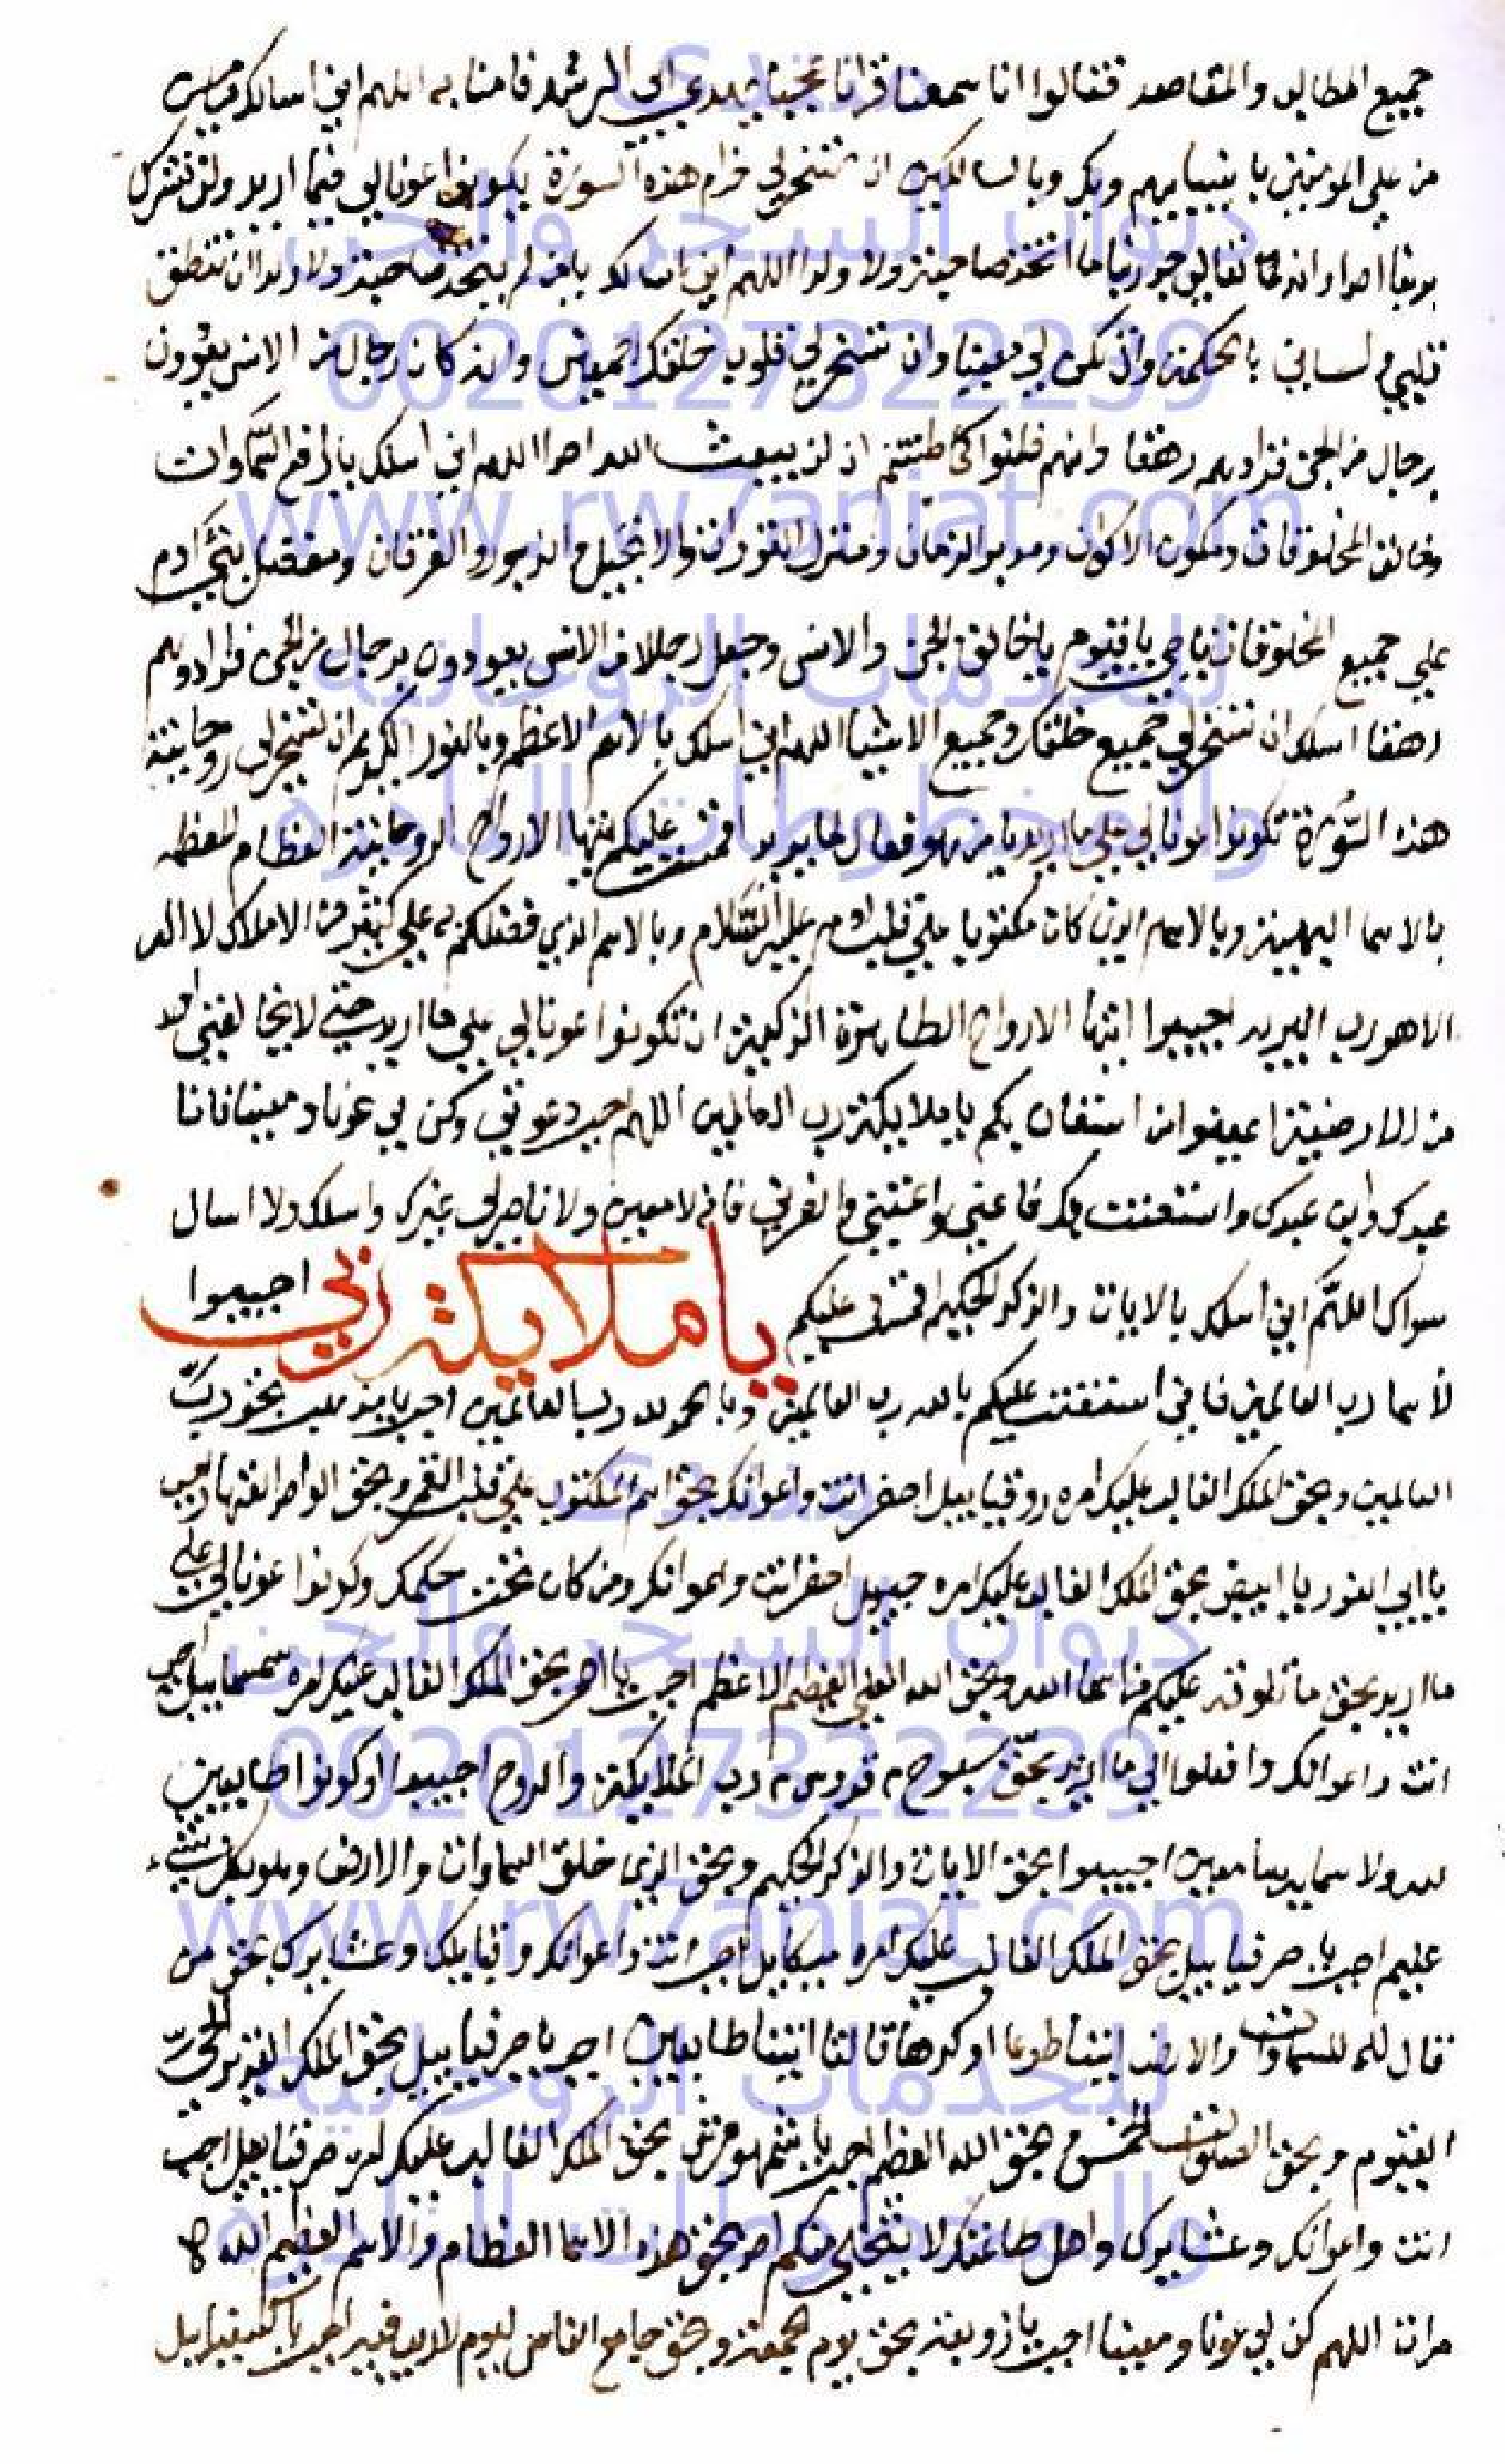 جميع المطالب والمقاصد فقالوا انا سمعنا قرانا عجبا يهدي الي الرشد فامنا به اللهم اني اسالك
من علي المومنين بانبيايهم وبك وبالسالكين ان تسخر لي خدام هذه السورة يكونوا عونا لي فيما اريد ولن نشرك
بربنا احدا وانه تعالي جد ربنا ما اتخذ صاحبة ولا ولدا اللهم اني اسالك يامن لم يتخذ صاحبة ولا ولدا ان تنطق
قلبي ولساني بالحكمة وان تكن لي معينا وان تسخر لي قلوب خلقك اجمعين وانه كان رجال من الانس يعوذون
برجال من الجن فزادوهم رهقا وانهم ظنوا كما ظننتم ان لن يبعث الله احدا اللهم اني اسلك يا رافع السماوات
وخالق المخلوقات ومكون الاكوان ومدبر الزمان ومنزل التوراة والانجيل والزبور والفرقان ومفضل بني ادم
علي جميع المخلوقات يا حي يا قيوم يا خالق الجن والانس وجعل رجلا من الانس يعوذون برجال من الجن فزادوهم
رهقا اسلك ان تسخر لي جميع خلقك وجميع الاشيا اللهم اني اسلك بالاسم الاعظم وبالنور الكريم ان تسخر لي روحانية
هذه السورة تكونوا عونا لي علي ما اريد يا من هو فعال لما يريد اقسمت عليكم ايتها الارواح الروحانية العظام المعظمه
بالاسما البهية وبالاسم الذي كان مكتوبا علي قلب ادم عليه السلام وبالاسم الذي فضلكم به علي كثير من الاملاك لا اله
الا هو رب البريه اجيبوا ايتها الارواح الطاهرة الزكية ان تكونوا عونا لي علي ما اريد حتي لا يخالفني احد
من الارضية اعينوا من استغاث بكم يا ملايكة رب العالمين اللهم اجب دعوتي وكن لي عونا ومعينا فانا
عبدك وابن عبدك واستعنت بك فاعني واغثني وانصرني فانه لا معين ولا ناصر لي غيرك واسلك ولا اسال
سواك اللهم اني اسلك بالايات والذكر الحكيم اقسمت عليكم يا ملايكة ربي اجيبوا
لاسما رب العالمين فاني استغثت عليكم بالله رب العالمين وبالحمد لله رب العالمين اجب يا مذهب بحق رب
العالمين وبحق الملك الغالب عليك امره روقياييل احضر انت واعوانك بحق اسم المكتوب علي قلب القمر وبحق الواحد القهار اجب
يا ابي النور يا ابيض بحق الملك الغالب عليك امره جبريل احضر انت واعوانك ومن كان تحت حكمك وكونوا عونا لي علي
ما اريد بحق ما تلوته عليكم من اسما الله وبحق الله العلي العظيم الاعظم اجب يا احمر بحق الملك الغالب عليك امره سمسماييل اجب
انت واعوانك وافعلوا لي ما اريد بحق سبوح قدوس رب الملايكة والروح اجيبوا او كونوا طايعين
لله ولاسمايه سامعين اجيبوا بحق الايات والذكر الحكيم وبحق الذي خلق السماوات والارض وهو بكل شيء
عليم اجب يا صرفياييل بحق الملك الغالب عليك امره ميكاييل اجب انت واعوانك وقبايلك وعشايرك بحق من
قال لله للسماوات والارض ايتيا طوعا او كرها قالتا اتينا طايعين اجب يا صرفياييل بحق الملك العزيز الحي
القيوم وبحق الصلوات الخمس وبحق الله العظيم اجب يا شمهورش بحق الملك الغالب عليك امره صرفياييل اجب
انت واعوانك وعشايرك واهل طاعتك لا يتخلي منكم احد بحق هذه الاسما العظام والاسم العظيم الله
مرات اللهم كن لي عونا ومعينا اجب يا زوبعة بحق يوم الجمعة وبحق جامع الناس ليوم لا ريب فيه اجب يا